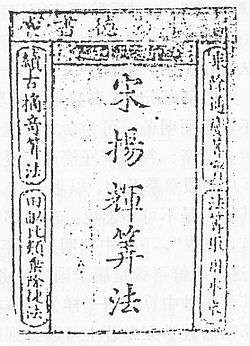 書 德
乘除通變算寶
法算取用本末
宋揚輝筭法
續古摘奇算法
田畝比類乘除捷法